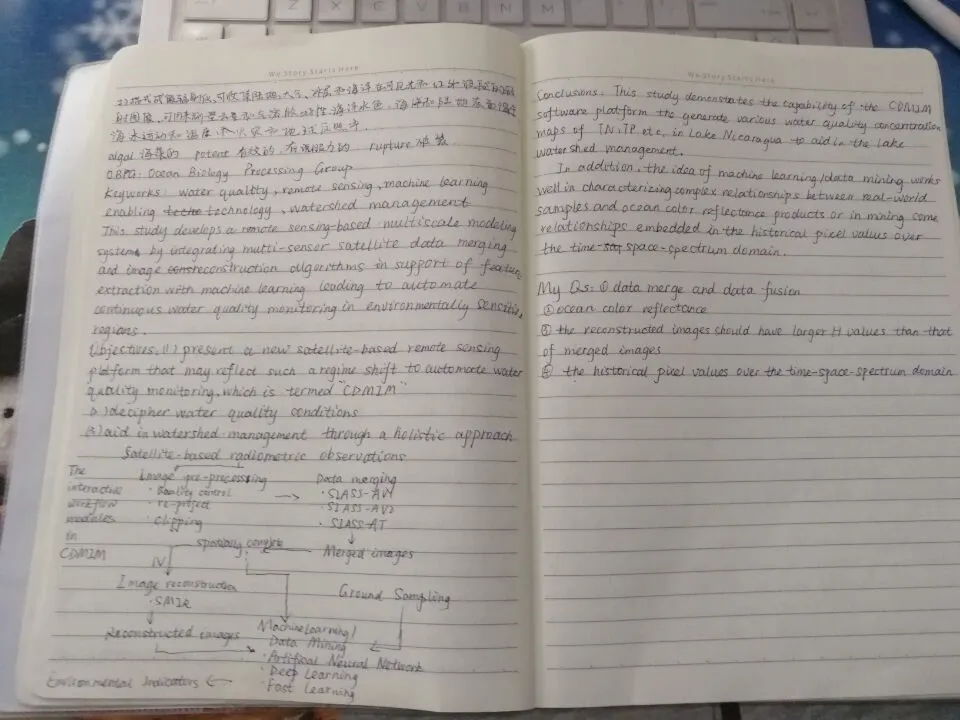 We Story Starts Here
海水运动和温度
algal 污染的 potent 有效的, 有说服力的 rupture 破裂
OBPG: Ocean Biology Processing Group
Keyworks: water quality, remote sensing, machine learning
enabling technology, watershed management
This study develops a remote sensing-based multiscale modeling
system by integrating multi-senser satellite data merging
and image reconstruction algorithms in support of feature
extraction with machine learning leading to automate
continuous water quality monitoring in environmentally sensitive
regions.
Objectives: (1) present a new satellite-based remote sensing
platform that may reflect such a regime shift to automate water
quality monitoring, which is termed "CDMIM"
(2) decipher water quality conditions
(3) aid in watershed management through a holistic approach
Satellite-based radiometric observations
The interactive workflow modules in CDMIM
Image pre-processing
· Quality control
· re-project
· Clipping
Data merging
· SIASS-AV1
· SIASS-AV2
· SIASS-AT
Merged images
spatially complete
N
Image reconstruction
· SMIR
Reconstructed images
Ground Sampling
Machine Learning/
Data Mining
· Artifical Neural Network
· Deep Learning
· Fast learning
Environmental Indicators
We Story Starts Here
Conclusions: This study demonstrates the capability of the CDMIM
software platform the generate various water quality concentration
maps of TN, TP etc, in Lake Nicaragua to aid in the lake
watershed management.
In addition, the idea of machine learning/data mining works
well in characterizing complex relationships between real-world
samples and ocean color reflectance products or in mining some
relationships embedded in the historical pixel values over
the time-space-spectrum domain.
My Qs: ① data merge and data fusion
② ocean color reflectance
③ the reconstructed images should have larger H values than that
of merged images
④ the historical pixel values over the time-space-spectrum domain